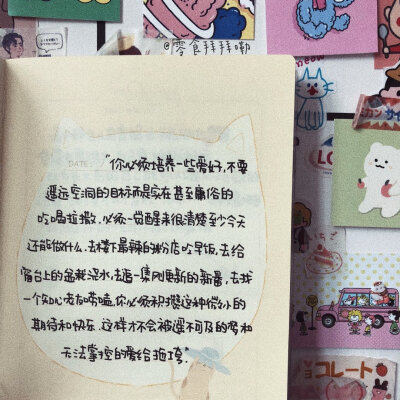 @零食拜拜嘞
DATE:
"你必须培养一些爱好,不要
遥远空洞的目标而是实在甚至庸俗的
吃喝拉撒,必须一觉醒来很清楚至少今天
还能做什么.去楼下最辣的粉店吃早饭,去给
窗台上的盆栽浇水,去追一集刚更新的新番,去找
一个知心友友唠嗑,你必须积攒这种微小的
期待和快乐.这样才不会被遥不可及的梦和
无法掌控的爱给拖垮."
meow
コレート